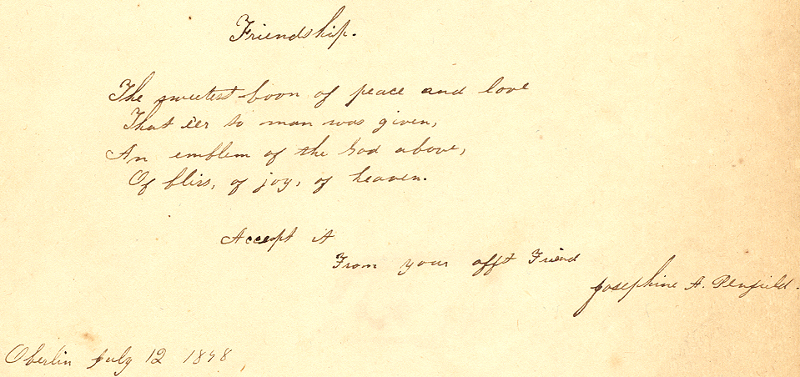 Friendship.
The sweetest boon of peace and love
That e'er to man was given,
An emblem of the God above,
Of bliss, of joy, of heaven.
Accept it
From your afft Friend
Josephine A. Penfield.
Oberlin July 12 1848